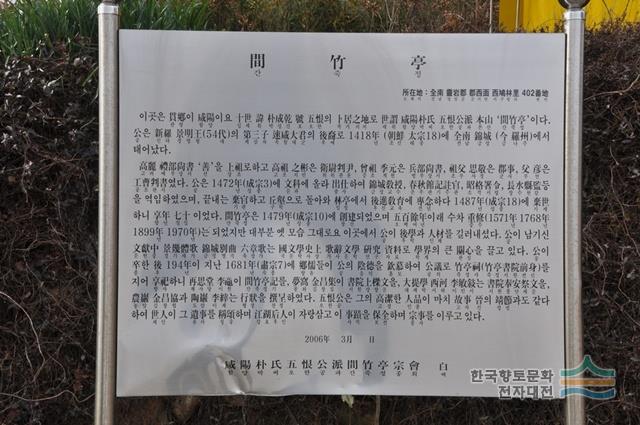 間竹亭
간죽정
所在地: 全南 靈岩郡 郡西面 西鳩林里 402番地
이곳은 貫鄕이 咸陽이요 十世 諱 朴成乾 號 五恨의 卜居之地로 世謂 咸陽朴氏 五恨公派 本山 '間竹亭'이다.
公은 新羅 景明王(54代)의 第三子 速咸大君의 後裔로 1418年(朝鮮 太宗18)에 全南 錦城(今 羅州)에서
태어났다.
高麗 禮部尙書 '善'을 上祖로하고 高祖 之彬은 衛尉判尹, 曾祖 季元은 兵部尙書, 祖父 思敬은 郡事, 父 彦은
工曹判書였다. 公은 1472年(成宗3)에 文科에 올라 出仕하여 錦城敎授, 春秋館記註官, 昭格署令, 長水縣監등
을 역임하였으며, 끝내는 棄官하고 丘壑으로 돌아와 林亭에서 後進敎育에 專念하다 1487年(成宗18)에 棄世
하니 享年 七十 이었다. 間竹亭은 1479年(成宗10)에 創建되었으며 五百餘年이래 수차 重修(1571年 1768年
1899年 1970年)는 되었지만 대부분 옛 모습 그대로요 이곳에서 公이 後學과 人材를 길러내셨다. 公이 남기신
文獻中 景幾體歌 錦城別曲 六章歌는 國文學史上 歌辭文學 硏究 資料로 學界의 큰 關心을 끌고 있다. 公이
卒한 後 194年이 지난 1681年(肅宗7)에 鄕儒들이 公의 陰德을 欽慕하여 公議로 竹亭祠(竹亭書院前身)를
지어 享祀하니 再思堂 李黿이 間竹亭記를, 夢窩 金昌集이 書院上樑文을, 大提學 西河 李敏敍는 書院奉安祭文을,
農巖 金昌協과 陶巖 李縡는 行狀을 撰하였다. 五恨公은 그의 高潔한 人品이 마치 故事 晉의 靖節과도 같다
하여 世人이 그 遺事를 稱頌하며 江湖后人이 자랑삼고 이 事蹟을 保全하며 宗事를 이루고 있다.
2006年 3月 日
咸陽朴氏五恨公派間竹亭宗會 白
함양박씨오한공파간죽정종회 백
한국향토문화
전자대전